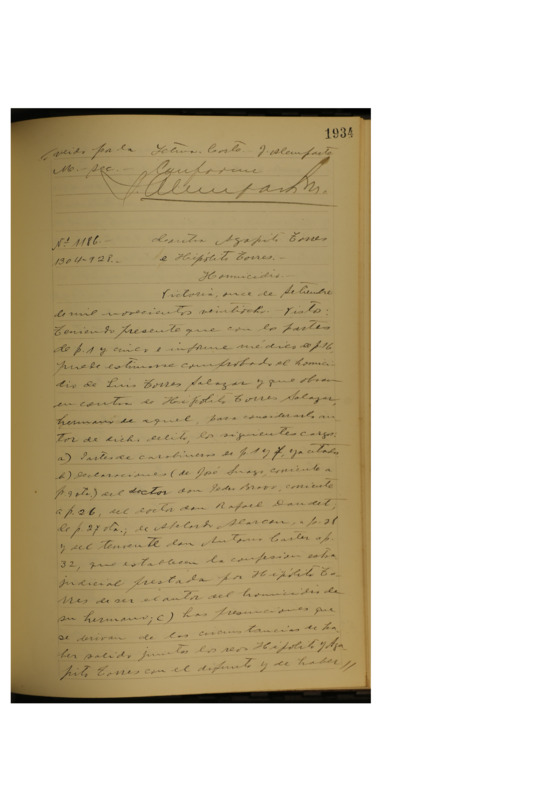 1934
Conforme
Nº 1186.- Contra Agapito Torres
1304-928.- e Hipólito Torres.-
Homicidio.-
Victoria, once de setiembre
de mil novecientos veintiocho. Vistos:
Teniendo presente que con los partes
de f. 1 y e informe médico de f. 16
puede estimarse comprobado el homici-
dio de Luis Torres Salazar y que obran
en contra de Hipólito Torres Salazar,
hermano de aquel, para considerarlo au-
tor de dicho delito, los siguientes cargos:
a) Partes de carabineros de f. 1 y 7, ya citados
b) Declaraciones (de José Suazo, corriente a
f. 9 vta.) del doctor don Pedro Bravo, corriente
a f. 26, del doctor don Rafael Daudet,
de f. 27 vta., de Abelardo Alarcon, a f. 28
y del teniente don Antonio a f.
32, que establecen la confesion extra
judicial prestada por Hipólito To-
rres de ser el autor del homicidio de
su hermano; c) Las presunciones que
se derivan de las circunstancias de ha-
ber salido juntos los reos Hipólito y Aga
pito Torres con el difunto y de haber //